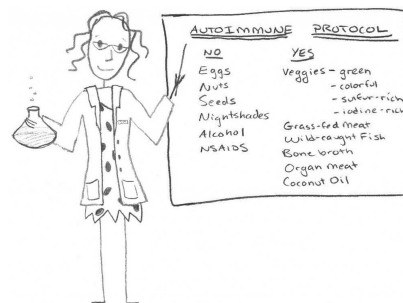 AUTOIMMUNE PROTOCOL
NO
Eggs
Nuts
Seeds
Nightshades
Alcohol
NSAIDS
YES
Veggies - green
- colorful
- sulfur-rich
- iodine-rich
Grass-fed meat
Wild-caught Fish
Bone broth
Organ meat
Coconut Oil